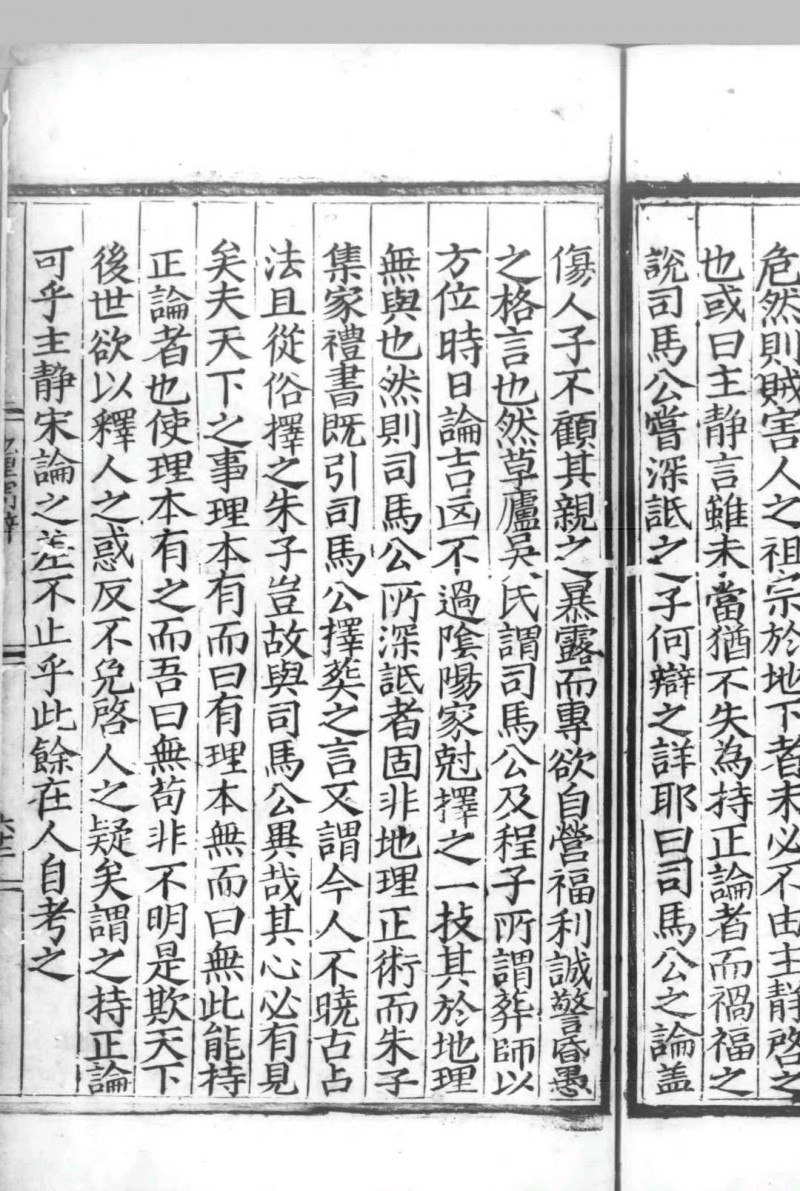 危然則賊害人之祖宗於地下者未必不由主静啓之
也或曰主静言雖未當猶不失為持正論者而禍福之
說司馬公嘗深詆之子何辯之詳耶曰司馬公之論盖
傷人子不顧其親之暴露而專欲自營福利誠警昏愚
之格言也然草廬吳氏謂司馬公及程子所謂葬師以
方位時日論吉凶不過隂陽家尅擇之一技其於地理
無與也然則司馬公所深詆者固非地理正術而朱子
集家禮書既引司馬公擇葬之言又謂今人不曉古占
法且從俗擇之朱子豈故與司馬公異哉其心必有見
矣夫天下之事理本有而曰有理本無而曰無此能持
正論者也使理本有之而吾曰無苟非不明是欺天下
後世欲以釋人之惑反不免啓人之疑矣謂之持正論
可乎主静宋論之差不止乎此餘在人自考之